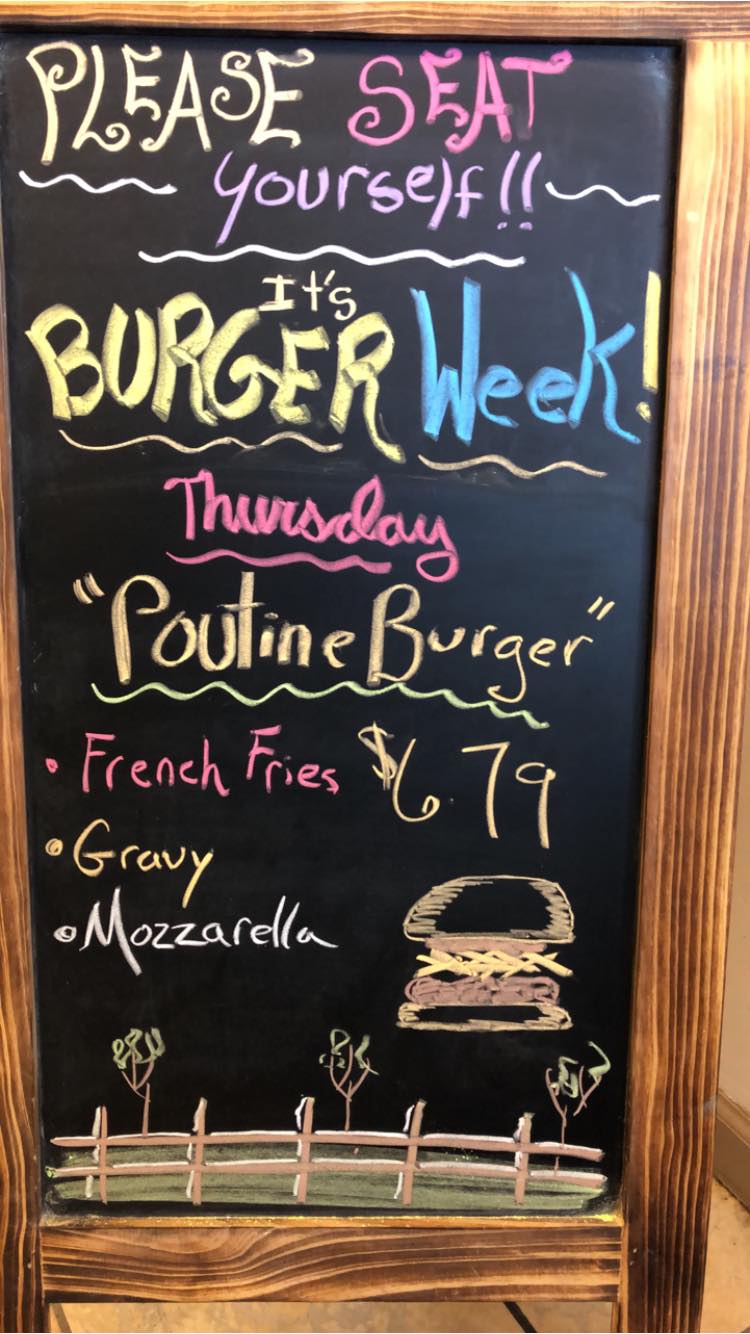 PLEASE SEAT
yourself!!
It's
BURGER Week!
Thursday
"Poutine Burger"
• French Fries $6.79
• Gravy
• Mozzarella